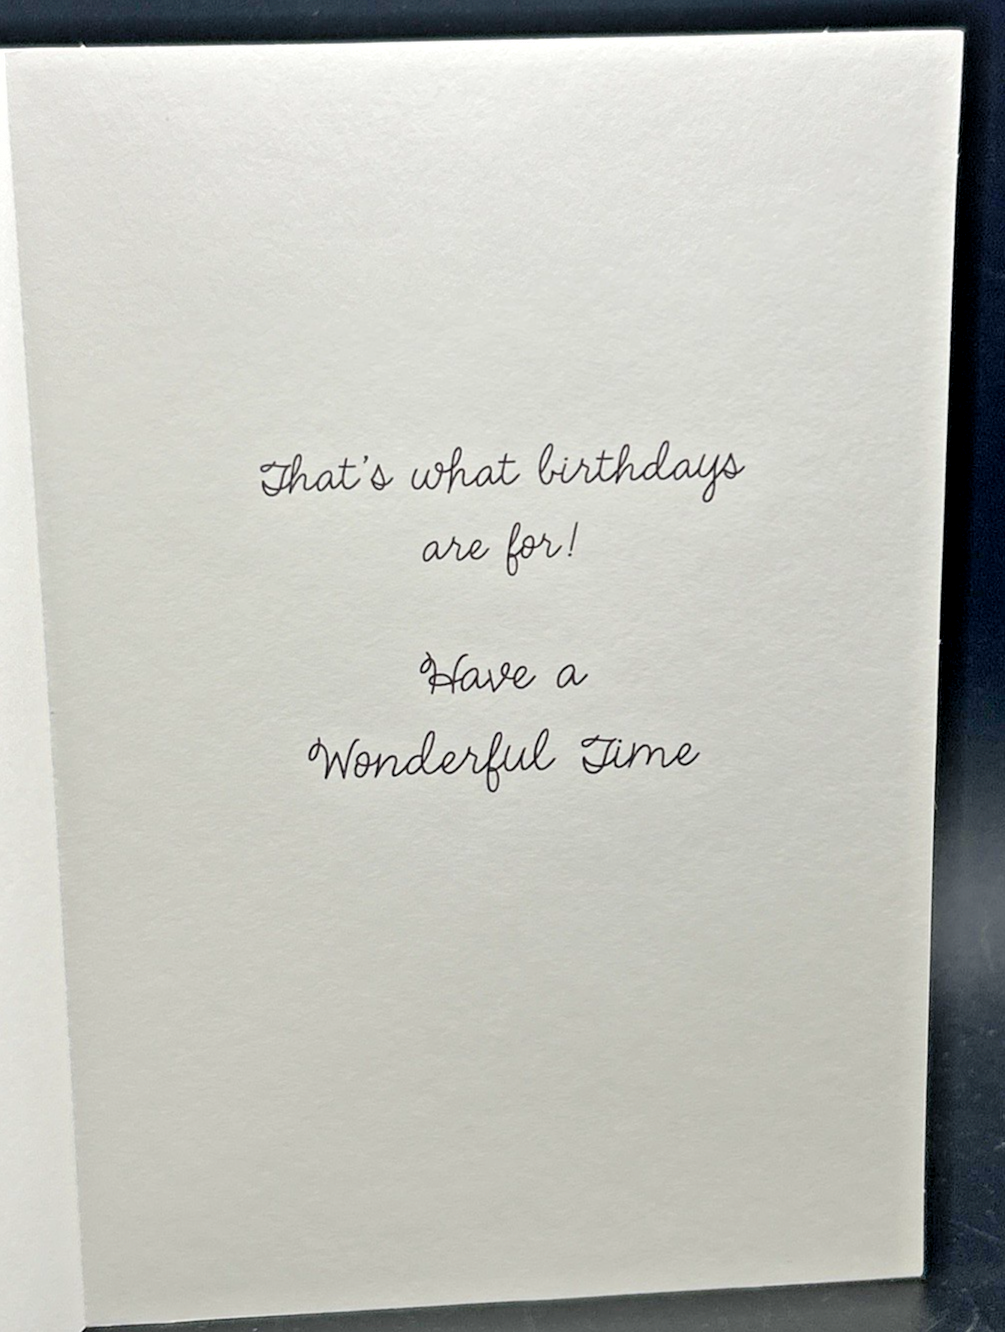 That's what birthdays
are for!
Have a
Wonderful Time